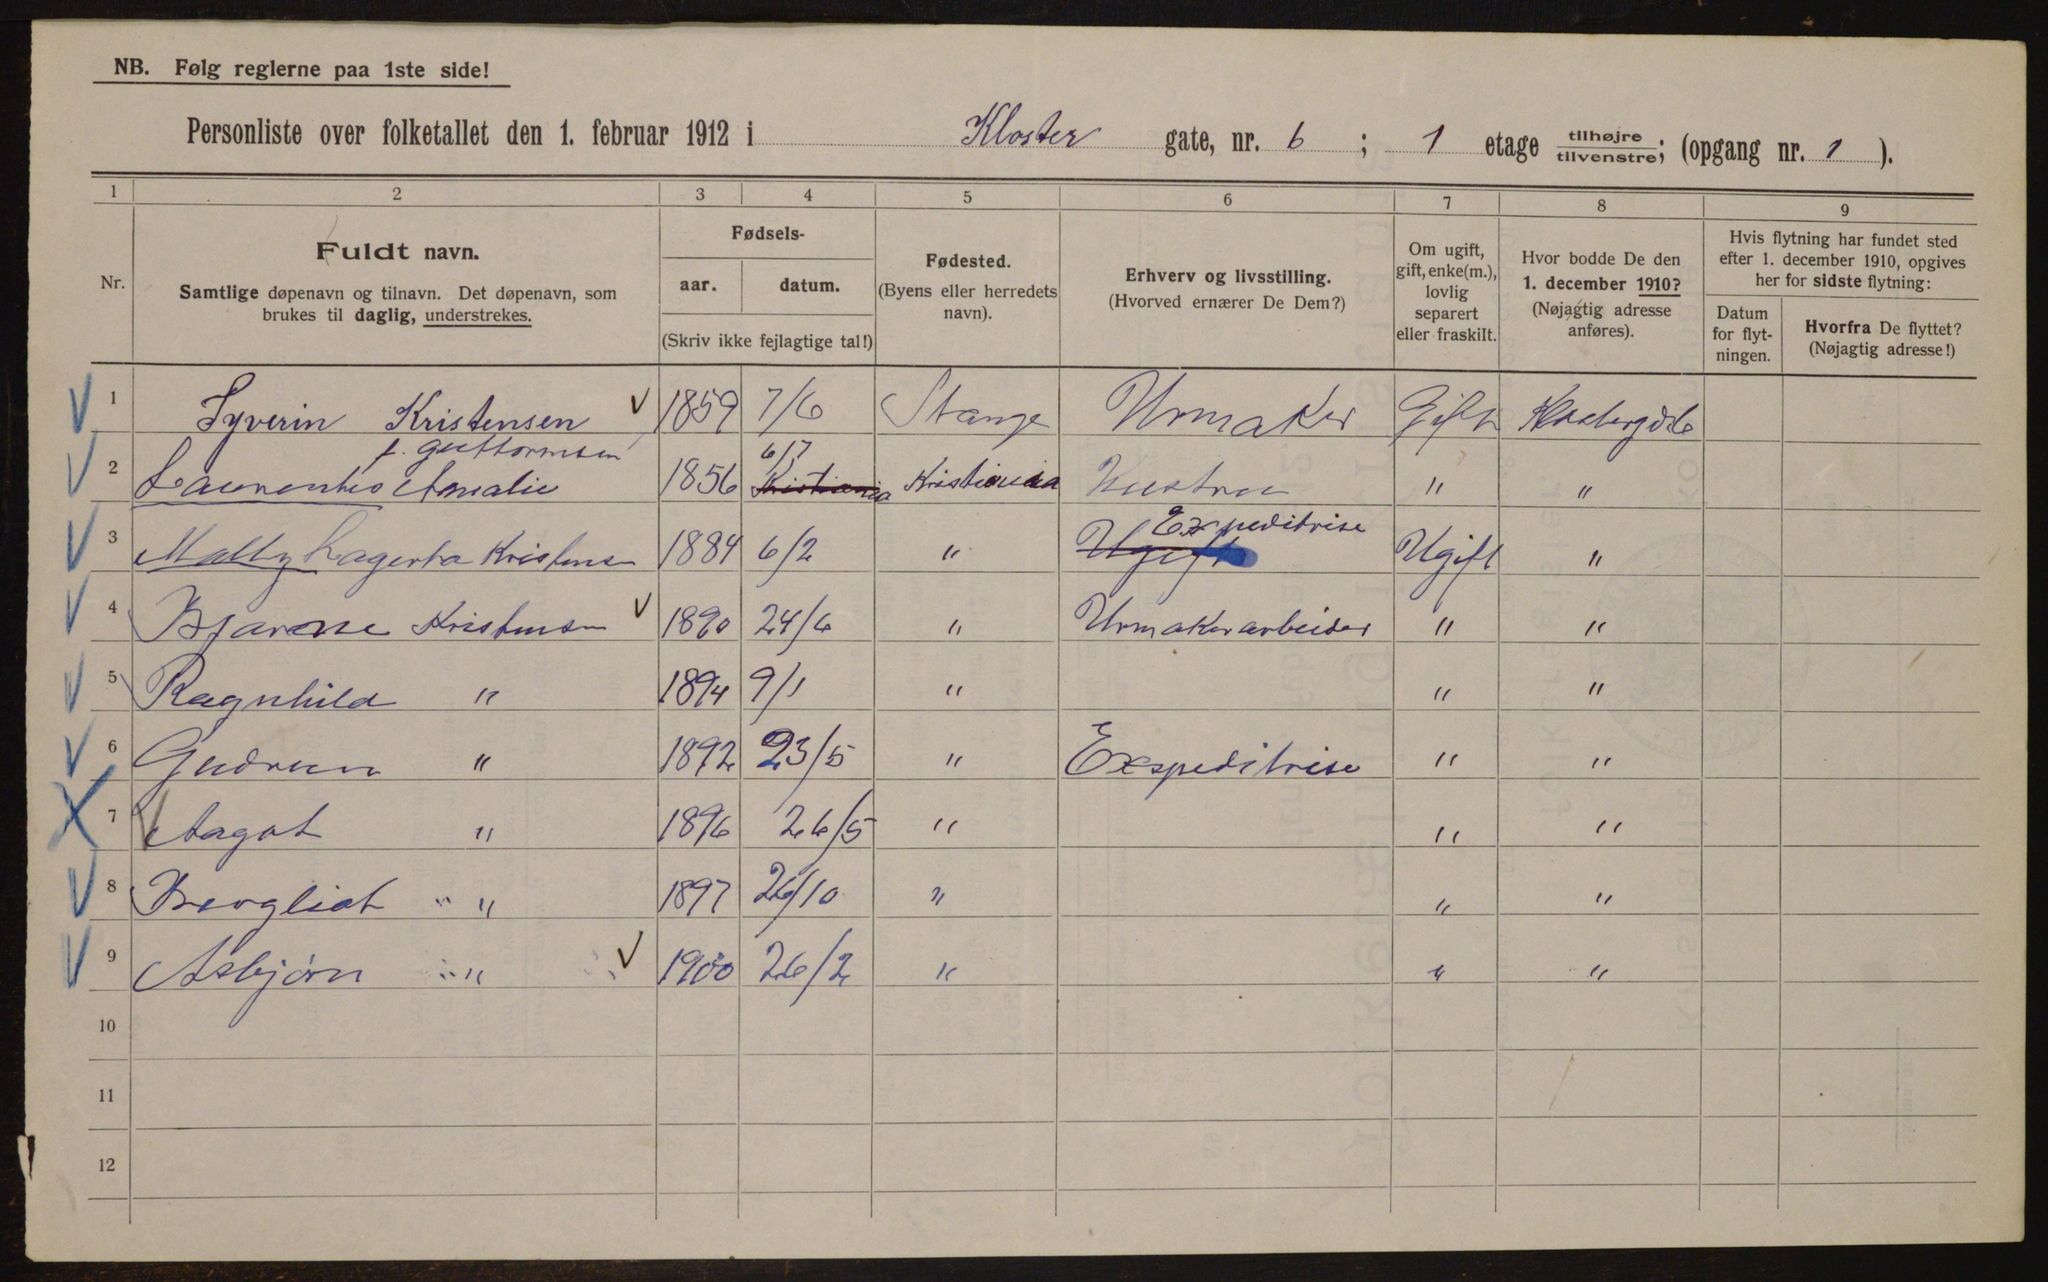 NB. Følg reglerne paa 1ste side!
Personliste over folketallet den 1. februar 1912 i Kloster gate, nr. 6 ; 1 etage tilhøjre/tilvenstre; (opgang nr. 1 ).
1 2 3 4 5 6 7 8 9
Nr.
Fuldt navn.
Samtlige døpenavn og tilnavn. Det døpenavn, som
brukes til daglig, understrekes.
Fødsels-
aar. datum.
(Skriv ikke fejlagtige tal!)
Fødested.
(Byens eller herredets
navn).
Erhverv og livsstilling.
(Hvorved ernærer De Dem?)
Om ugift,
gift, enke(m.),
lovlig
separert
eller fraskilt.
Hvor bodde De den
1. december 1910?
(Nøjagtig adresse
anføres).
Hvis flytning har fundet sted
efter 1. december 1910, opgives
her for sidste flytning:
Datum
for flyt-
ningen.
Hvorfra De flyttet?
(Nøjagtig adresse!)
1 Syverin Kristensen 1859 7/6 Stange Urmaker Gift
f. Guttormsen
2 Amalie 1856 6/7 Kristiania Kristiania Hustru " "
3 Lagerta Kristensen 1884 6/2 " Ugift Expeditrise Ugift "
4 Bjarne Kristensen 1890 24/6 " Urmakerarbeider " "
5 Ragnhild " 1894 9/1 " " "
6 Gudrun " 1892 23/5 " Exspeditrise " "
7 Aagot " 1896 26/5 " " "
8 Bergliot " " 1897 26/10 " " "
9 Asbjørn " " 1900 26/2 " " "
10
11
12